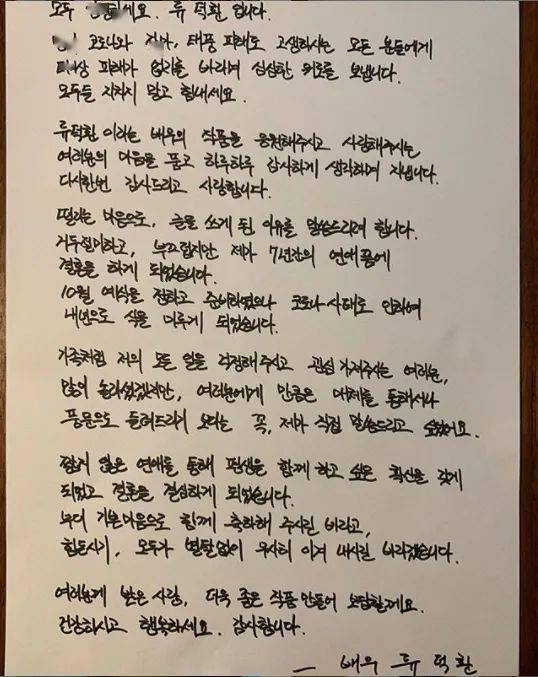 모두 세요. 류 덕환 입니다.
코로나와 태풍 피해로 고생하시는 모든 분들에게
피해가 없기를 바라며 심심한 위로를 보냅니다.
모두들 지치지 말고 힘내세요.
류덕환 이라는 배우의 작품을 응원해주시고 사랑해주시는
여러분의 마음을 품고 하루하루 감사하게 생각하며 지냅니다.
다시한번 감사드리고 사랑합니다.
떨리는 마음으로, 글을 쓰게 된 이유를 말씀드리려 합니다.
거두절미하고, 부끄럽지만 제가 7년간의 연애끝에
결혼을 하게 되었습니다.
10월 예식을 정하고 준비하였으나 코로나 사태로 인하여
내년으로 식을 미루게 되었습니다.
가족처럼 저의 모든 일을 걱정해주시고 관심 가져주시는 여러분,
많이 놀라셨겠지만, 여러분에게 만큼은 매체를 통해서나
풍문으로 들려드리기 보다는 꼭, 제가 직접 말씀드리고 싶었어요.
짧지 않은 연애를 통해 평생을 함께 하고 싶은 확신을 갖게
되었고 결혼을 결심하게 되었습니다.
부디 기쁜마음으로 함께 축하해 주시길 바라고,
힘든시기, 모두가 별탈없이 무사히 이겨 내시길 바라겠습니다.
여러분께 받은 사랑, 더욱 좋은 작품 만들어 보답할게요.
건강하시고 행복하세요. 감사합니다.
— 배우 류 덕환